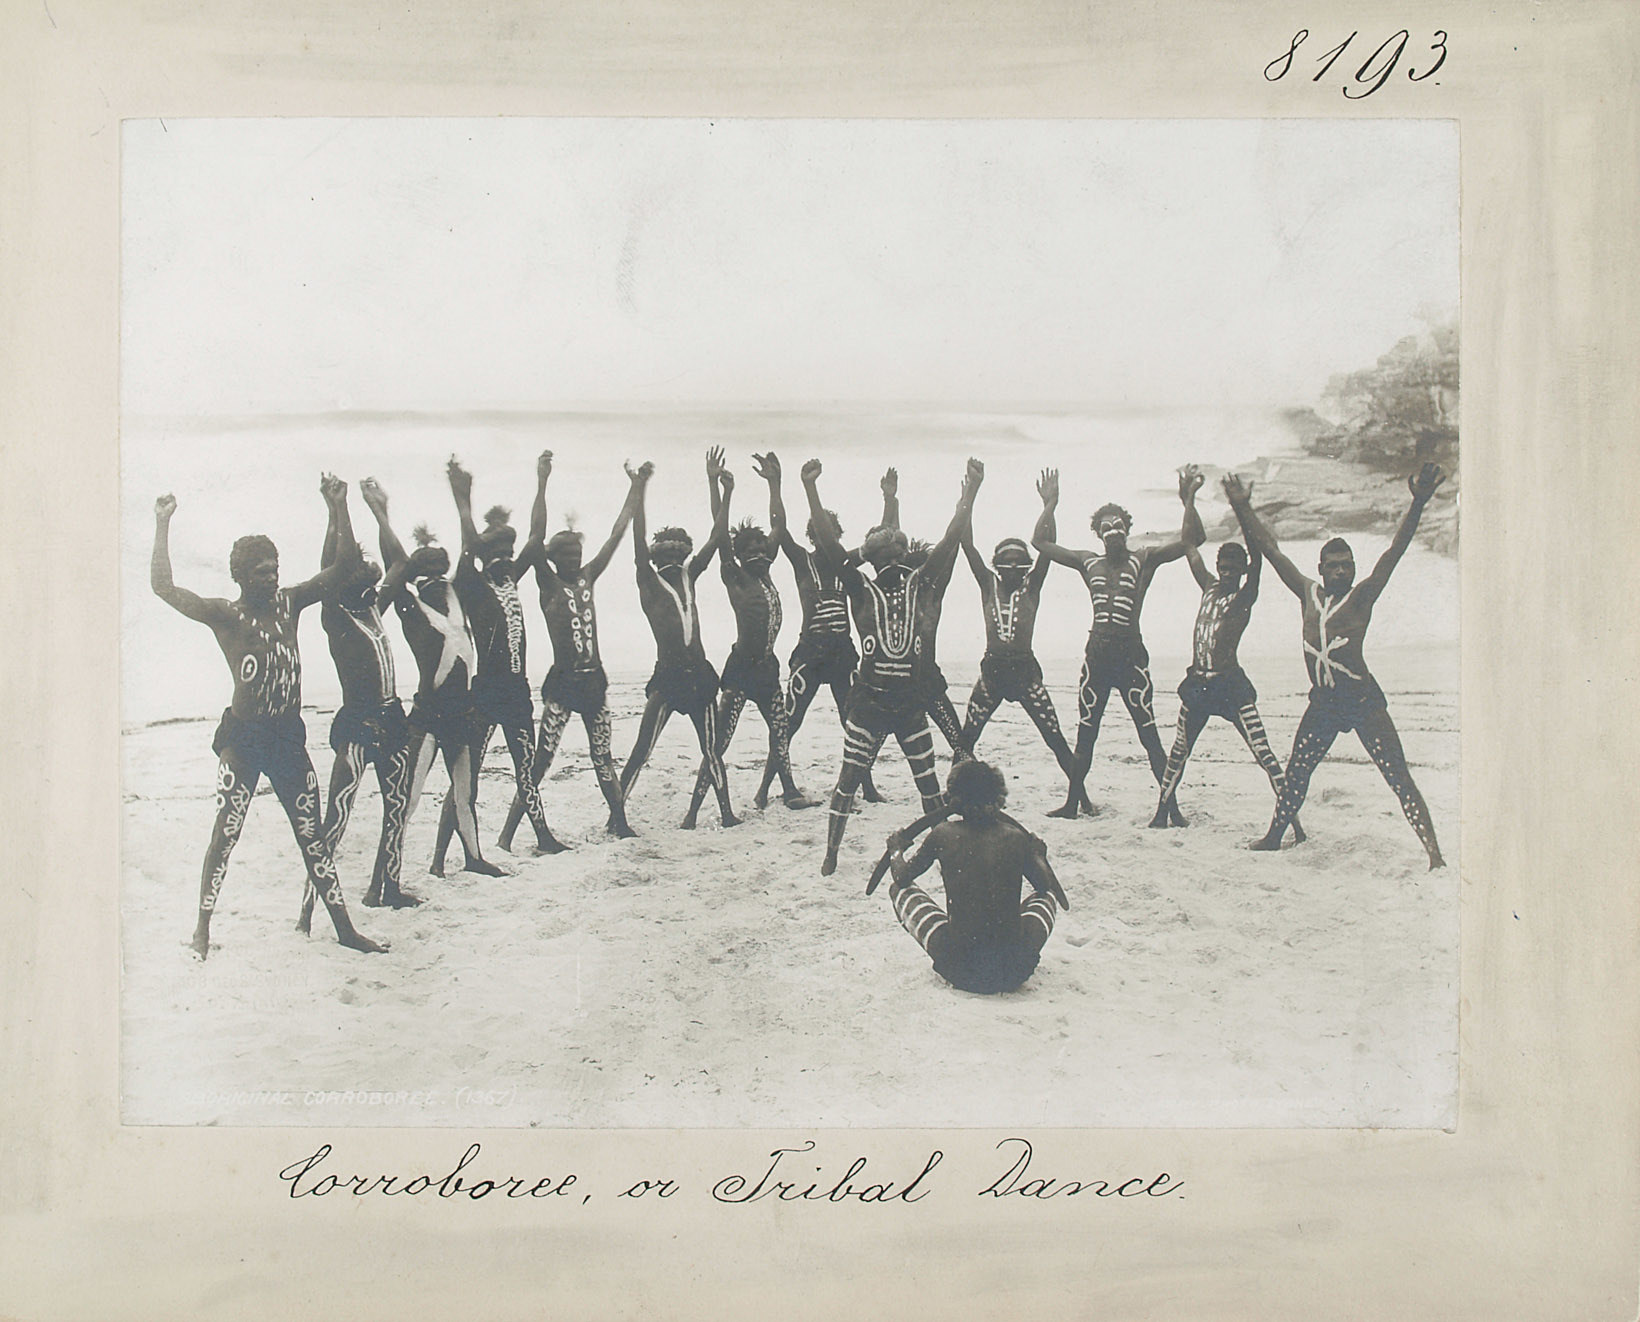 8193.
ABORIGINAL CORROBOREE. (1367)
Corroboree, or Tribal Dance.